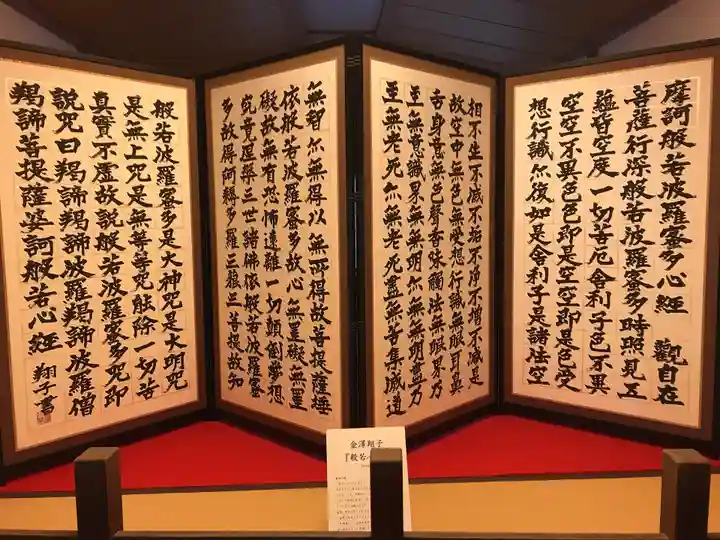 摩訶般若波羅蜜多心經 觀自在
菩薩行深般若波羅蜜多時照見五
蘊皆空度一切苦厄舍利子色不異
空空不異色色即是空空即是色受
想行識亦復如是舍利子是諸法空
相不生不滅不垢不淨不增不減是
故空中無色無受想行識無眼耳鼻
舌身意無色聲香味觸法無眼界乃
至無意識界無無明亦無無明盡乃
至無老死亦無老死盡無苦集滅道
無智亦無得以無所得故菩提薩埵
依般若波羅蜜多故心無罣礙無罣
礙故無有恐怖遠離一切顛倒夢想
究竟涅槃三世諸佛依般若波羅蜜
多故得阿耨多羅三藐三菩提故知
般若波羅蜜多是大神咒是大明咒
是無上咒是無等等咒能除一切苦
真實不虛故說般若波羅蜜多咒即
說咒曰羯諦羯諦波羅羯諦波羅僧
羯諦菩提薩婆訶般若心經 翔子書
金澤翔子
『般若心